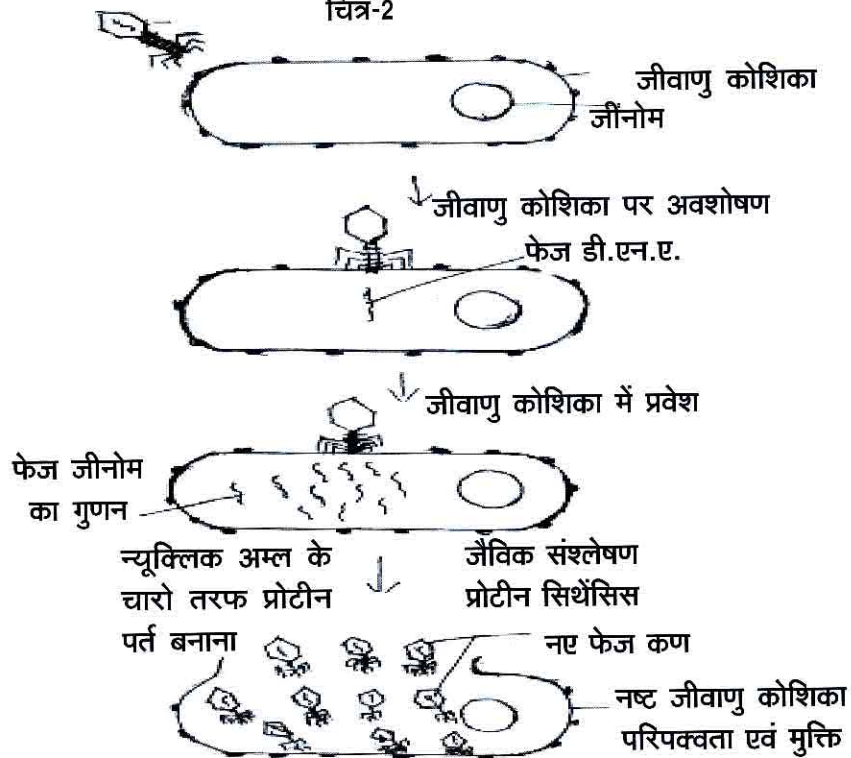 चित्र-2
जीवाणु कोशिका
जींनोम
जीवाणु कोशिका पर अवशोषण
फेज डी.एन.ए.
जीवाणु कोशिका में प्रवेश
फेज जीनोम
का गुणन
न्यूक्लिक अम्ल के
चारो तरफ प्रोटीन
पर्त बनाना
जैविक संश्लेषण
प्रोटीन सिथेंसिस
नए फेज कण
नष्ट जीवाणु कोशिका
परिपक्वता एवं मुक्ति